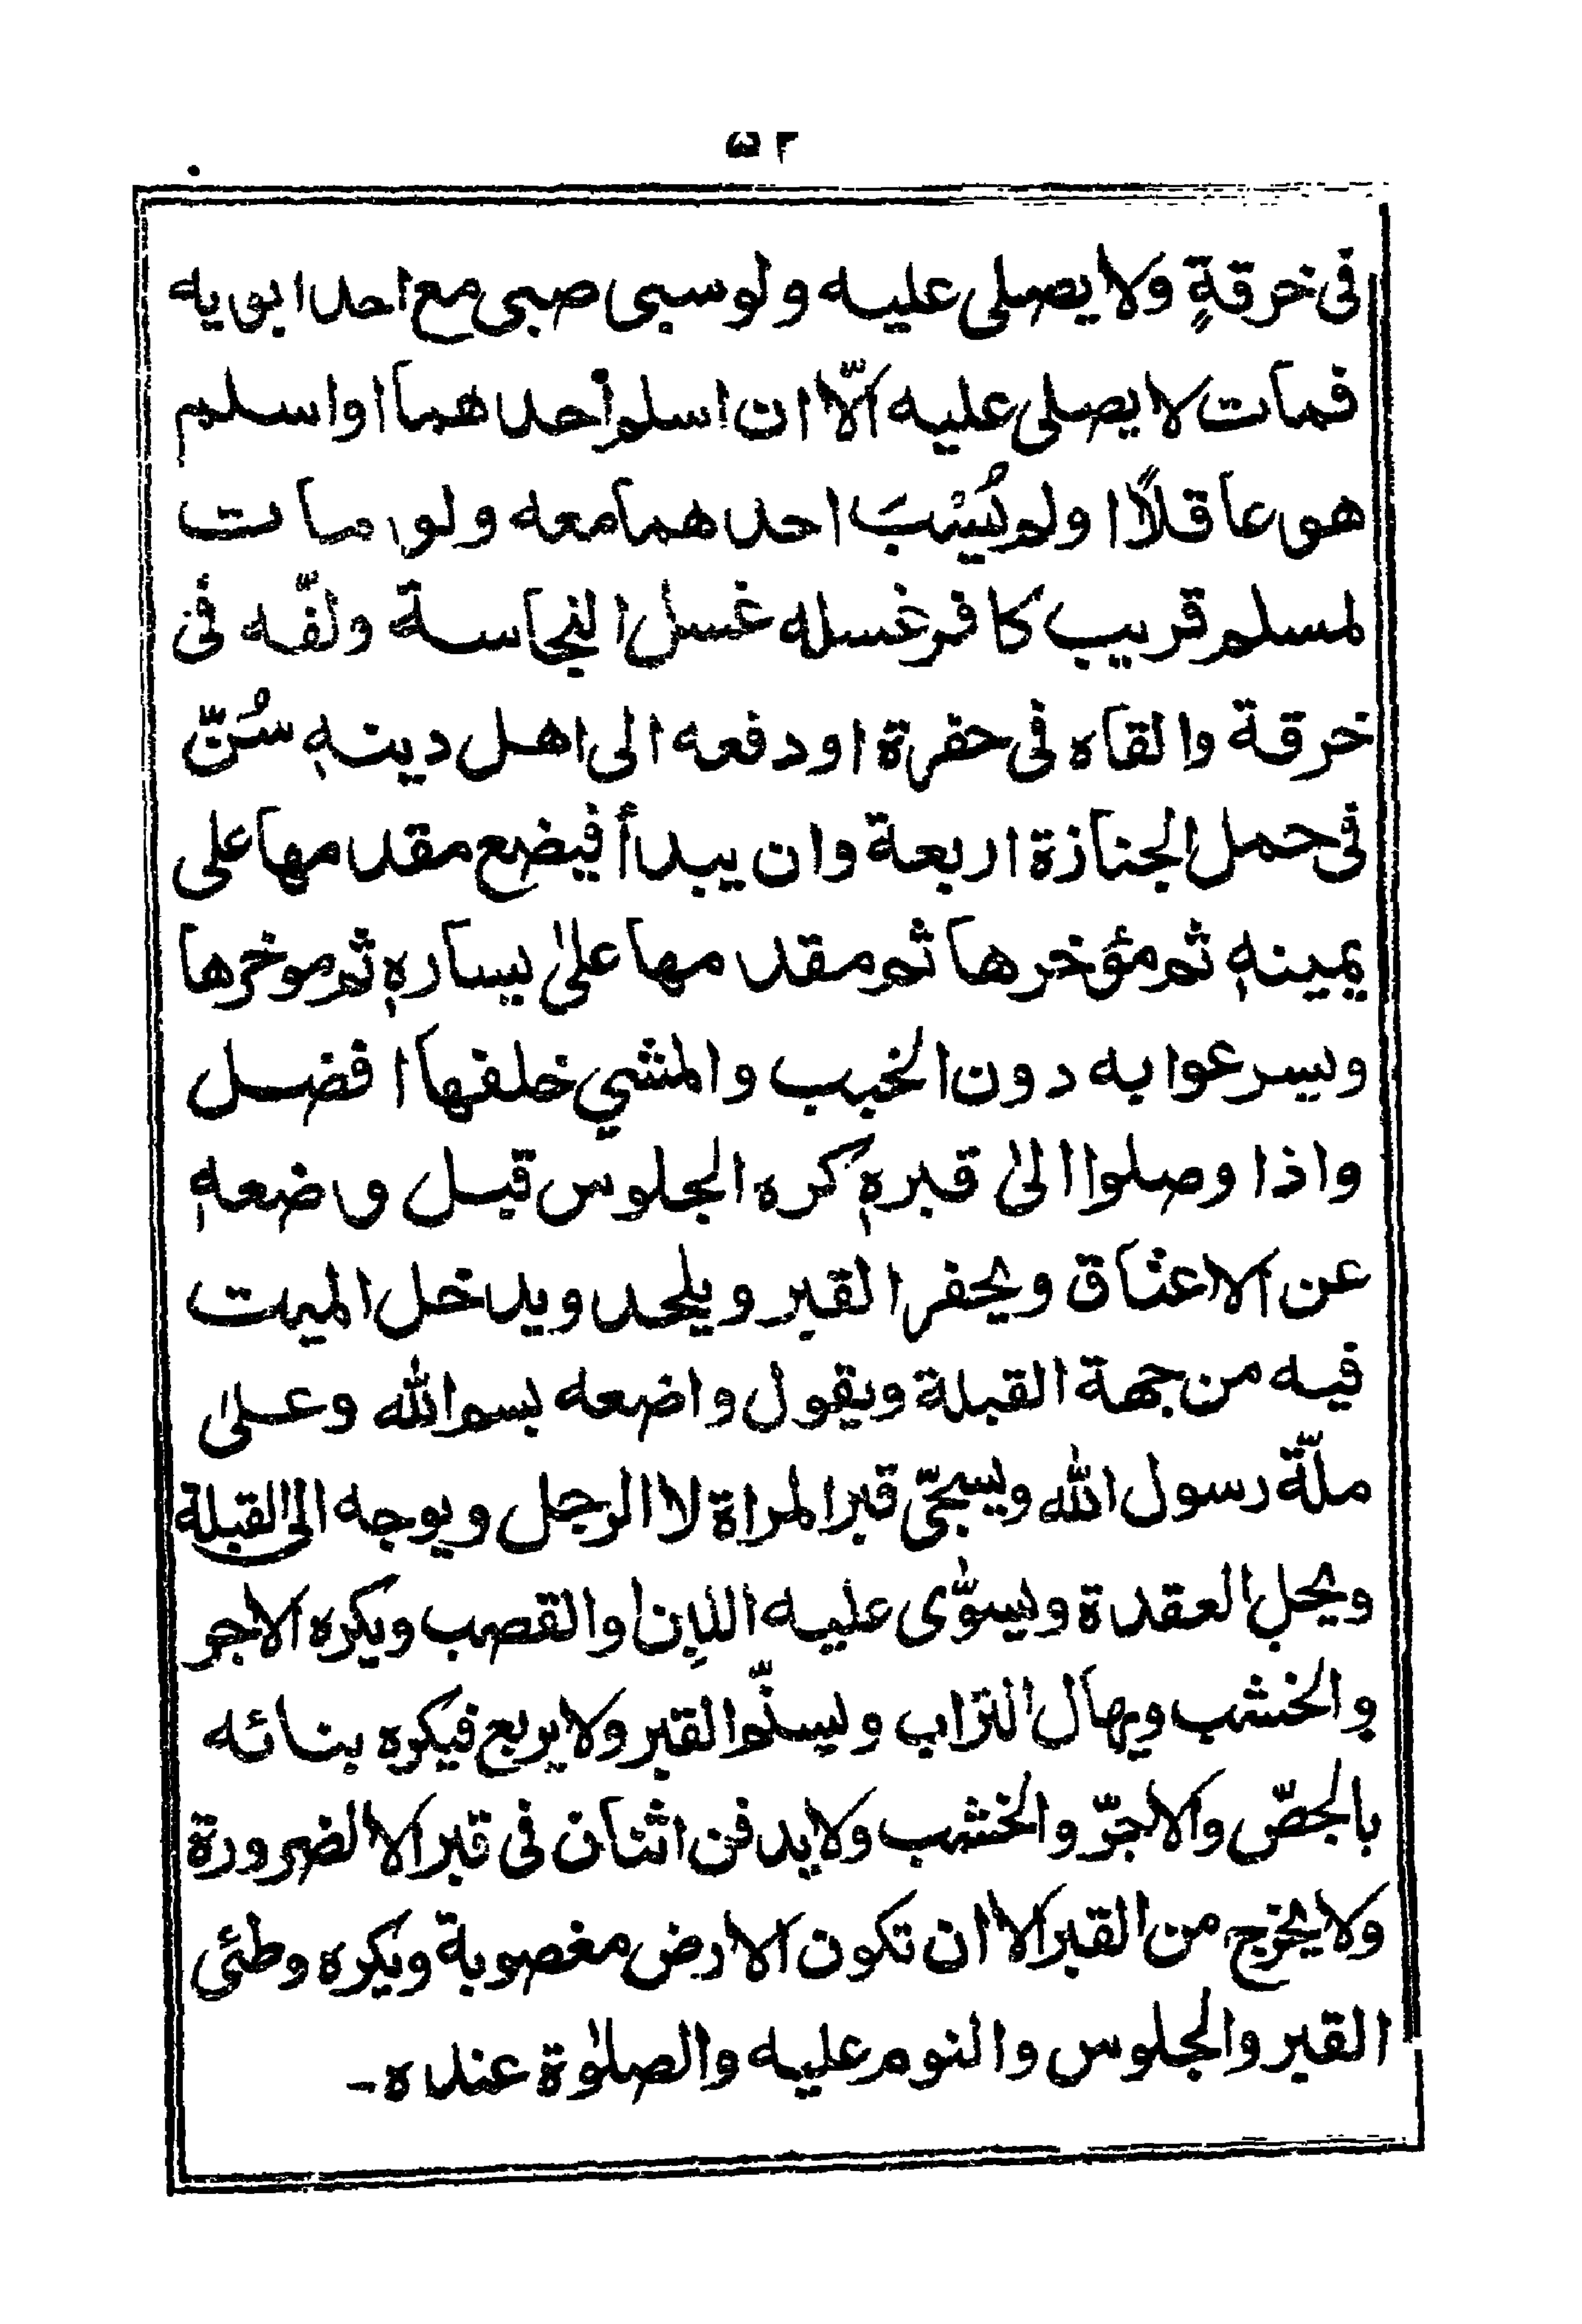 ٥٢
فى خرقةٍ ولا يصلى عليه ولو سبى صبى مع احد ابويه
فمات لا يصلى عليه الّا ان اسلم أحدهما او اسلم
هو عاقلاً او لم يُسْبَ احدهما معه ولو مات
لمسلم قريب كافر غسله غسل النجاسة ولفّه فى
خرقة والقاه فى حفرة او دفعه الى اهل دينهٖ سُنّ
فى حمل الجنازة اربعة وان يبدأ فيضع مقدمها على
يمينهٖ ثم مؤخرها ثم مقدمها علىٰ يسارهٖ ثم موخرها
ويسرعوا به دون الخبب والمشي خلفها افضل
واذا وصلوا الىٰ قبرهٖ كره الجلوس قبل وضعهٖ
عن الاعناق ويحفر القبر ويلحد ويدخل الميت
فيه من جهة القبلة ويقول واضعه بسم الله وعلىٰ
ملّة رسول الله ويسجّى قبر المراة لا الرجل ويوجه الى القبلة
ويحل العقدة ويسوّى عليه اللبِن والقصب ويكره الاجر
والخشب ويهال التراب ويسنّم القبر ولا يربع فيكره بنائه
بالجصّ والاجرّ والخشب ولا يدفن اثنان فى قبر الا لضرورة
ولا يخرج من القبر الا ان تكون الارض مغصوبة ويكره وطئى
القبر والجلوس والنوم عليه والصلوٰة عنده۔